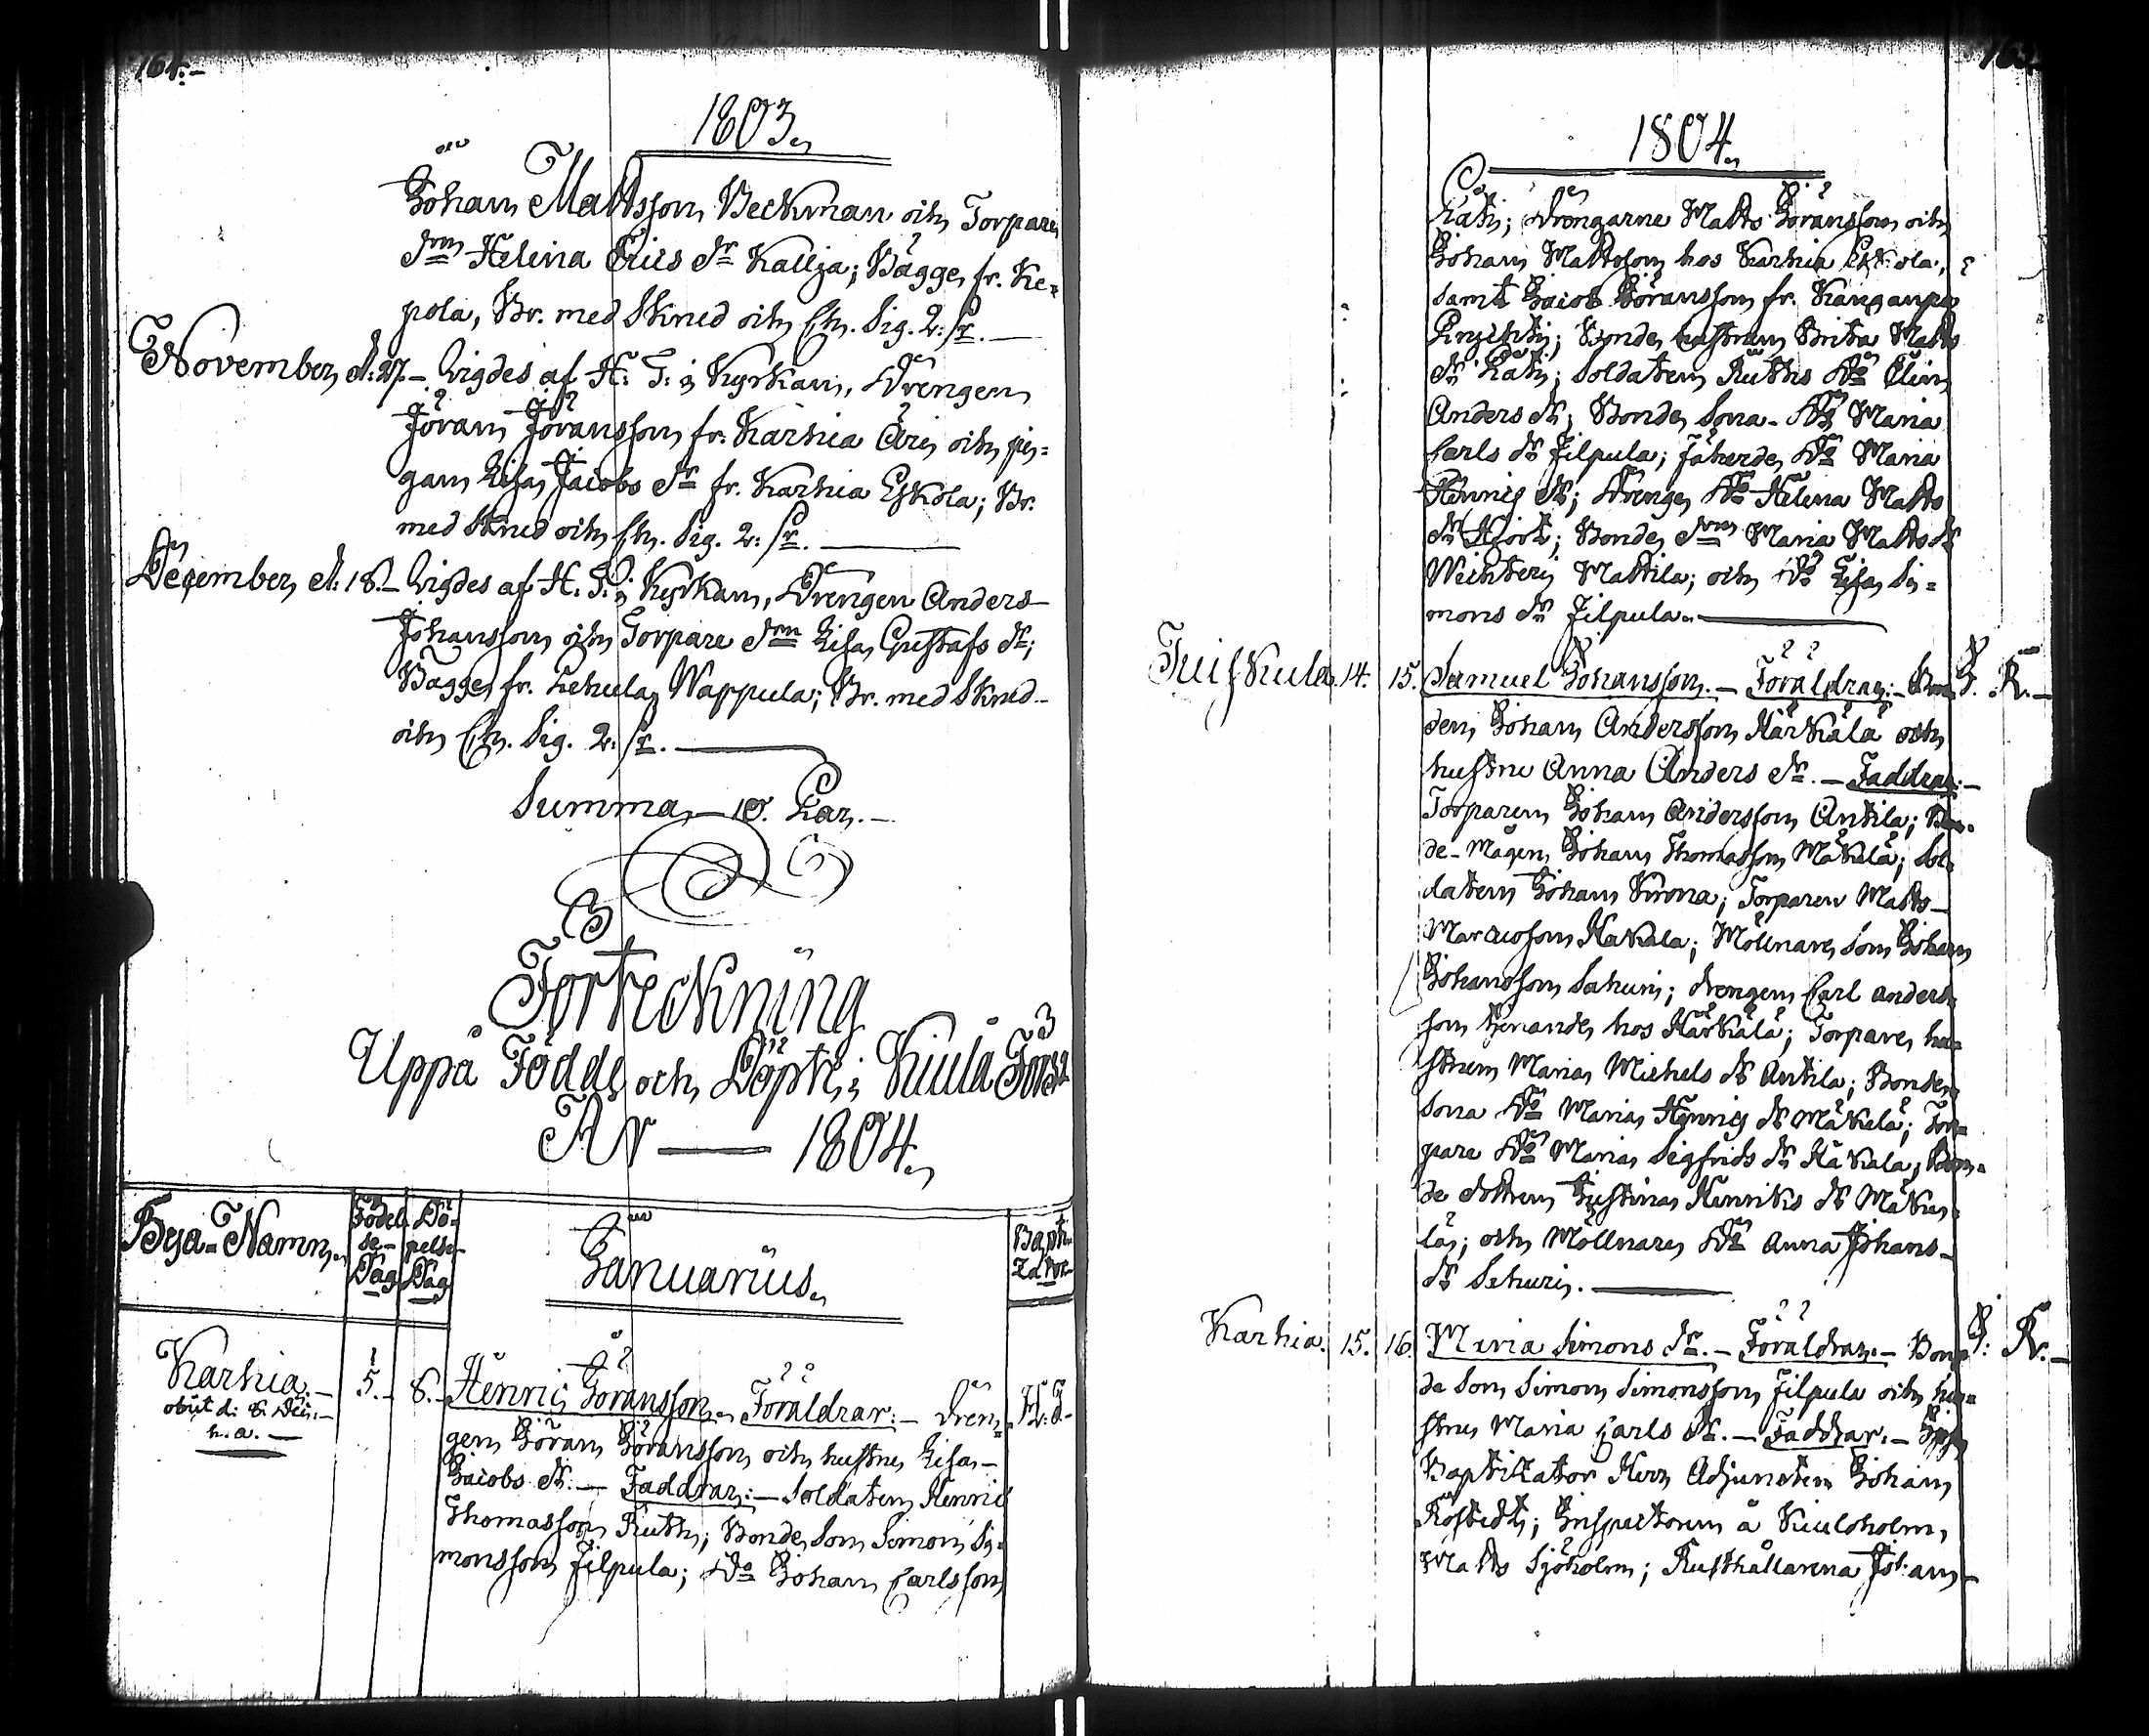 164.
1803.
Johan Mattsson Beckman och Torpare
drn Helena Erics dr Kallja; Bägge fr. Ke=
pola, Br. med Skned och Ch. Sig. 2: sr.
November d. 27. Vigdes af H: T: i Kyrkan, Drengen
Jöran Jöransson fr. Karhia Äri och pi=
gan Lisa Jacobs dr fr. Karhia Eskola; Br.
med Skned och Ch. Sig. 2: sr.
December d. 18. Vigdes af H. T. i Kyrkan, Drengen Anders
Johansson och Torpare drn Lisa Gustafs dr;
Bägge fr. Lehula Wappula; Br. med Skned
och Ch. Sig. 2: sr.
Summa 10. Par.
Förteckning
Uppå Födde och Döpte i Kiula
År 1804.
Bya-Namn. Födel se- Dag Dö- pelse- Dag Januarius. Bapti zator
Karhia. 5. 6. Henric Göransson. Föräldrar: Dren=
obiit d: 8. Dec.
h. a.
gen Göran Göransson och hustru Lisa
Jacobs dr. Faddrar: Soldaten Henric
Thomasson Ruth; Bonde Son Simon Si=
monsson Jilpula; Do Johan Carlsson
1804.
Käti; Drengarne Matts Göransson och
Johan Mattsson hos Karhia Eskola,
samt Jacob Göransson fr. Kanganpä
Bonde hustrun Brita Matts
dr Käti; Soldaten Ruths Do Elin
Anders dr; Bonde Sona Do Maria
Carls dr Jilpula; Jäherde Do Maria
Henrics dr; Drenge Do Helena Matts
dr Hjort; Bonde drn Maria Matts dr
Wichteri Mattila; och Do Lisa Si=
mons dr Jilpula.
Tuiskula. 14. 15. Samuel Johansson. Föräldrar: Bon= J. R.
den Johan Andersson Härkälä och
hustru Anna Anders dr. Faddrar:
Torparen Johan Andersson Antila; Bon=
de-Mågen Johan Thomasson Mäkelä; Sol=
daten Johan Krona; Torparen Matts
Marcusson Hakala; Möllnare Son Johan
Johansson Sahuri; drengen Carl Anders=
son tjenande hos Härkälä; Torpare hu=
strun Maria Michels dr Antila; Bonde
Sona Do Maria Henrics dr Mäkelä; Tor=
pare Do Maria Sigfrids dr Hakala; Bon=
de dottren Justina Henriks dr Mäke=
lä; och Möllnare Do Anna Johans
dr Sahuri.
Karhia. 15. 16. Maria Simons dr. Föräldrar. Bon= J: R.
de Son Simon Simonsson Jilpula och hu=
stru Maria Carls dr. Faddrar.
Baptizator Herr Adjuncten Johan
Rostedt; Inspectoren å Kiuloholm,
Matts Sjöholm; Rusthållarena Johan